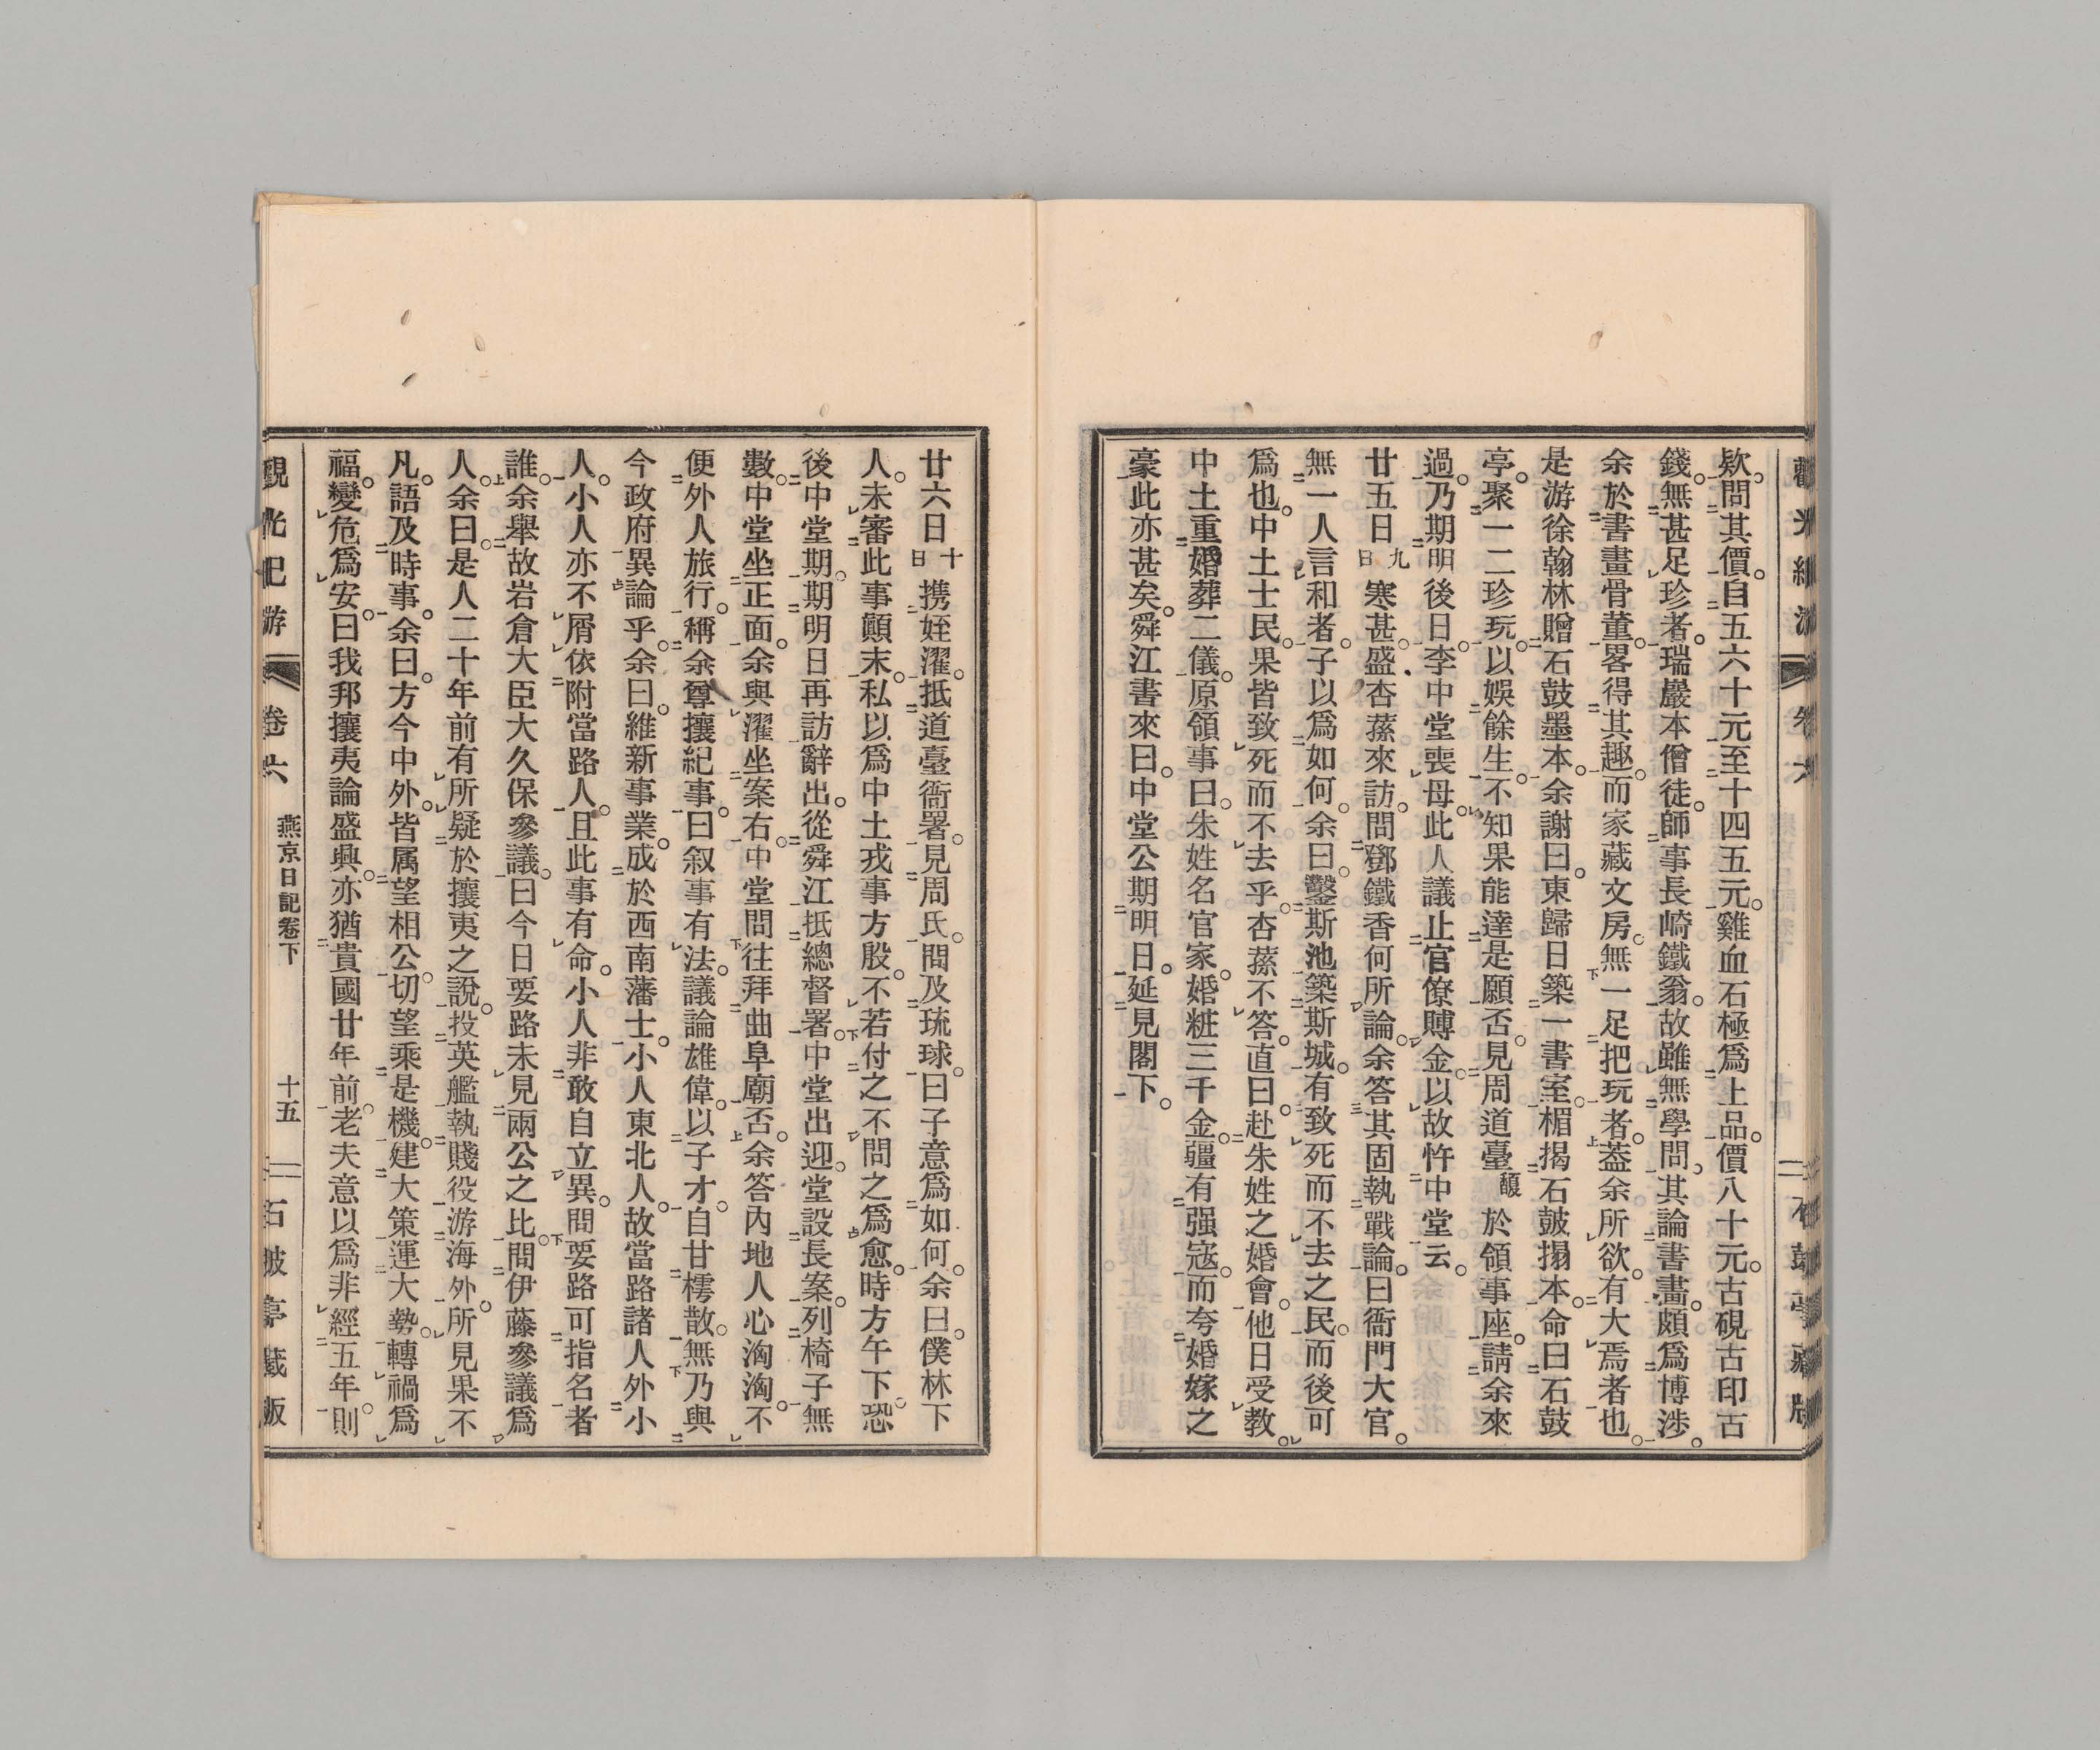 欵。問其價。自五六十元至十四五元。雞血石極爲上品。價八十元。古硯古印古
錢。無甚足珍者。瑞巖本僧徒。師事長崎鐵翁。故雖無學問。其論書畫。頗爲博渉。
余於書畫骨董。畧得其趣。而家藏文房。無一足把玩者。葢余所欲。有大焉者也。
是游徐翰林贈石鼓墨本。余謝曰。東歸日築一書室。楣揭石皷搨本。命曰石鼓
亭。聚一二珍玩。以娛餘生。不知果能達是願否。見周道臺馥於領事座。請余來
過。乃期明後日。李中堂喪母。此人議止官僚賻金。以故忤中堂云。
廿五日九日寒甚。盛杏蓀來訪。問鄧鐵香何所論。余答其固執戰論。曰衙門大官。
無一人言和者。子以爲如何。余曰。鑿斯池築斯城。有致死而不去之民。而後可
爲也。中土士民。果皆致死而不去乎。杏蓀不答。直曰。赴朱姓之婚會。他日受教。
中土重婚葬二儀。原領事曰。朱姓名官家。婚粧三千金。疆有强寇。而夸婚嫁之
豪此亦甚矣。舜江書來曰。中堂公期明日。延見閣下。
廿六日十日携姪濯。抵道臺衙署。見周氏。問及琉球。曰子意爲如何。余曰。僕林下
人。未審此事顛末。私以爲中土戎事方殷。不若付之不問之爲愈。時方午下。恐
後中堂期。期明日再訪辭出。從舜江抵總督署。中堂出迎。堂設長案。列椅子無
數。中堂坐正面。余與濯坐案右。中堂問往拜曲阜廟否。余答內地人心洶洶。不
便外人旅行。稱余尊攘紀事。曰叙事有法。議論雄偉。以子才。自甘樗散。無乃與
今政府異論乎。余曰。維新事業。成於西南藩士。小人東北人。故當路諸人外小
人。小人亦不屑依附當路人。且此事有命。小人非敢自立異。問要路可指名者
誰。余舉故岩倉大臣大久保參議。曰今日要路未見兩公之比。問伊藤參議爲
人。余曰。是人二十年前有所疑於攘夷之說。投英艦執賤役游海外。所見果不
凡。語及時事。余曰。方今中外。皆属望相公。切望乘是機。建大策運大勢。轉禍爲
福。變危爲安。曰我邦攘夷論盛興。亦猶貴國廿年前。老夫意以爲非經五年。則
觀光紀游 卷六 燕京日記卷下 十五 石皷亭藏版